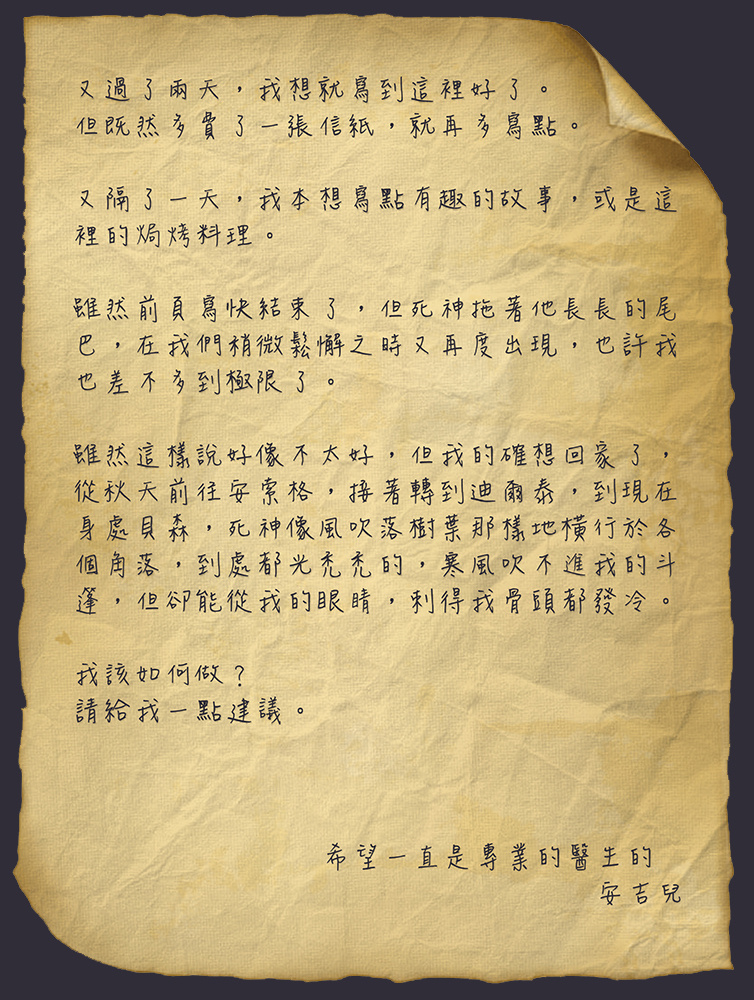 又過了兩天，我想就寫到這裡好了。
但既然多費了一張信紙，就再多寫點。
又隔了一天，我本想寫點有趣的故事，或是這
裡的焗烤料理。
雖然前頁寫快結束了，但死神拖著他長長的尾
巴，在我們稍微鬆懈之時又再度出現，也許我
也差不多到極限了。
雖然這樣說好像不太好，但我的確想回家了，
從秋天前往安索格，接著轉到迪爾泰，到現在
身處貝森，死神像風吹落樹葉那樣地橫行於各
個角落，到處都光禿禿的，寒風吹不進我的斗
蓬，但卻能從我的眼睛，刺得我骨頭都發冷。
我該如何做？
請給我一點建議。
希望一直是專業的醫生的
安吉兒